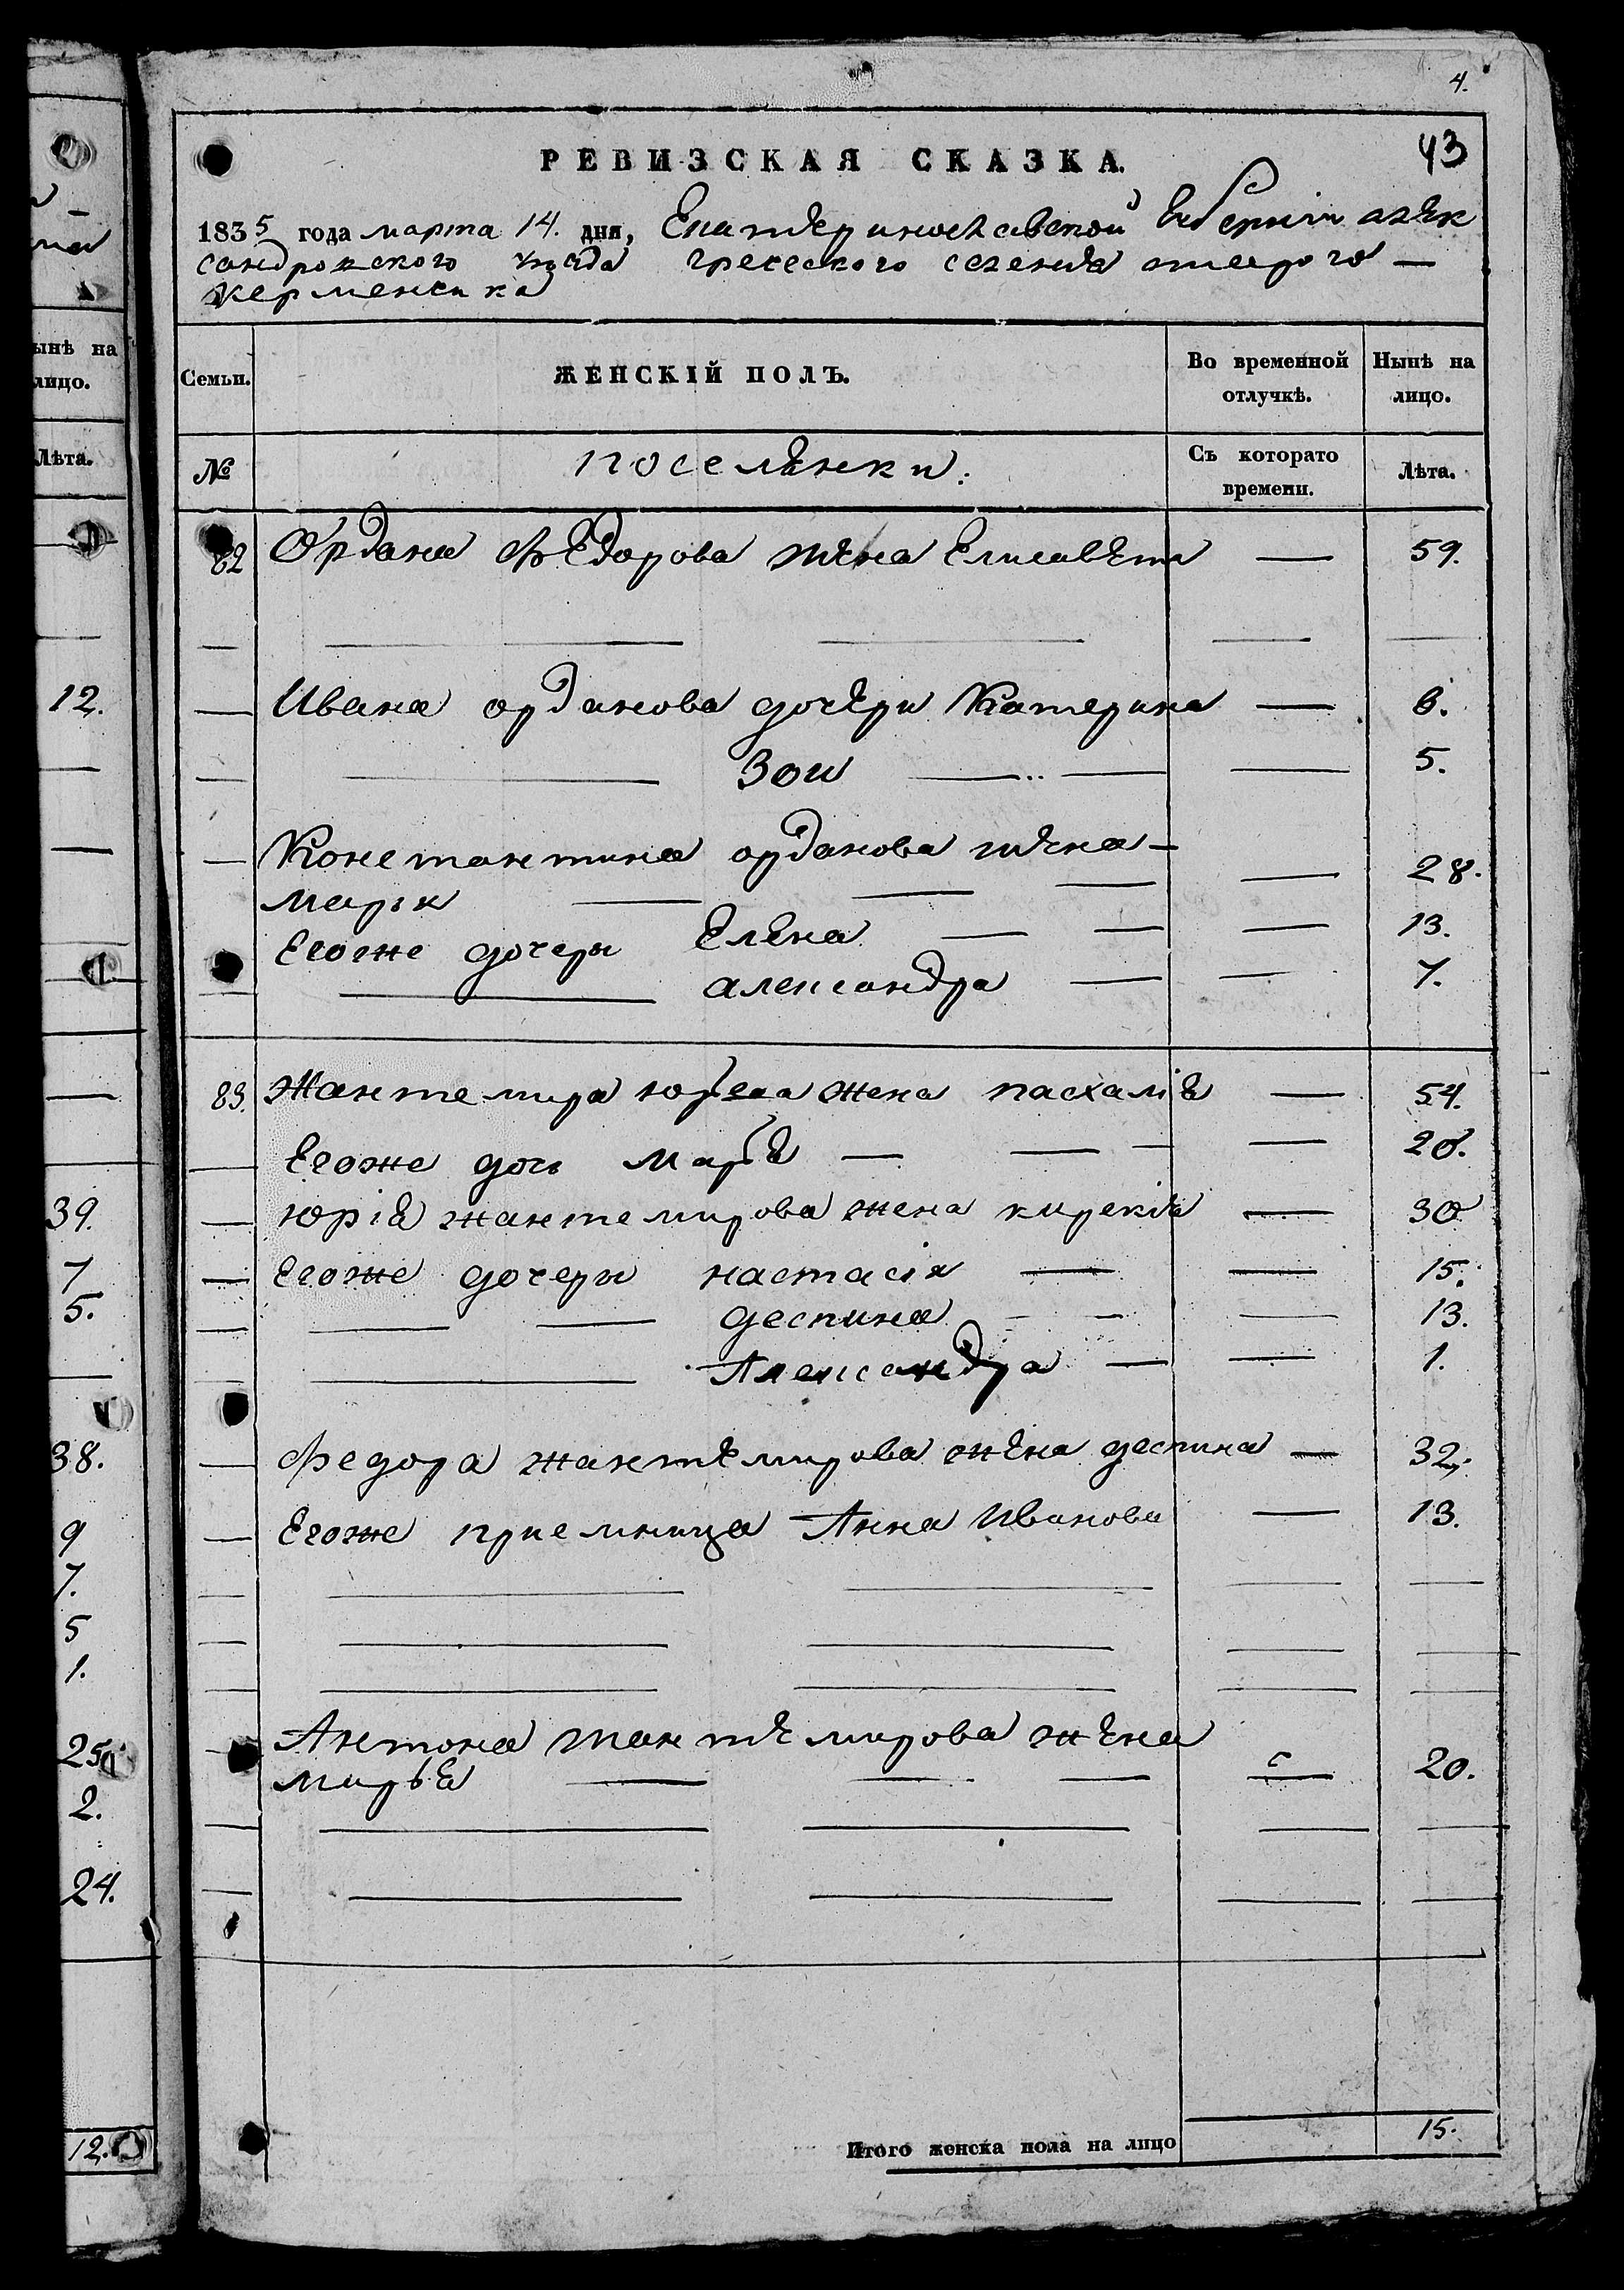 4.
43
РЕВИЗСКАЯ СКАЗКА.
1835 года марта 14. дня, Екатериносλавской Губернiи алек
сандровского уезда греческого селения старого —
керменсика
Семьи. ЖЕНСКІЙ ПОЛЪ. Во временной отлучкѣ. Нынѣ на лицо.
№ поселянки: Съ которато времени. Лѣта.
82 Ордана Федорова жена Елисавета — 59.
— Ивана орданова дочери Катерина — 6.
— Зои — 5.
— Константина орданова жена —
марiя — 28.
Егоже дочеры Елена — 13.
— александра — 7.
83. Жантемира юрева жена пасхалiа — 54.
— Егоже дочь Марѣа — 20.
— юрiа жантемирова жена кирекiа — 30
— Егоже дочеры настасiя — 15.
— деспина — 13.
— Александра — 1.
— Федора жантемирова жена деспина — 32.
— Егоже приемница Анна Иванова — 13.
— Антона жантемирова жена
марьа — 20.
Итого женска пола на лицо 15.
ынѣ на
лицо.
Лѣта.
12.
39.
7
5.
38.
9
7.
5
1.
25
2.
24.
12.